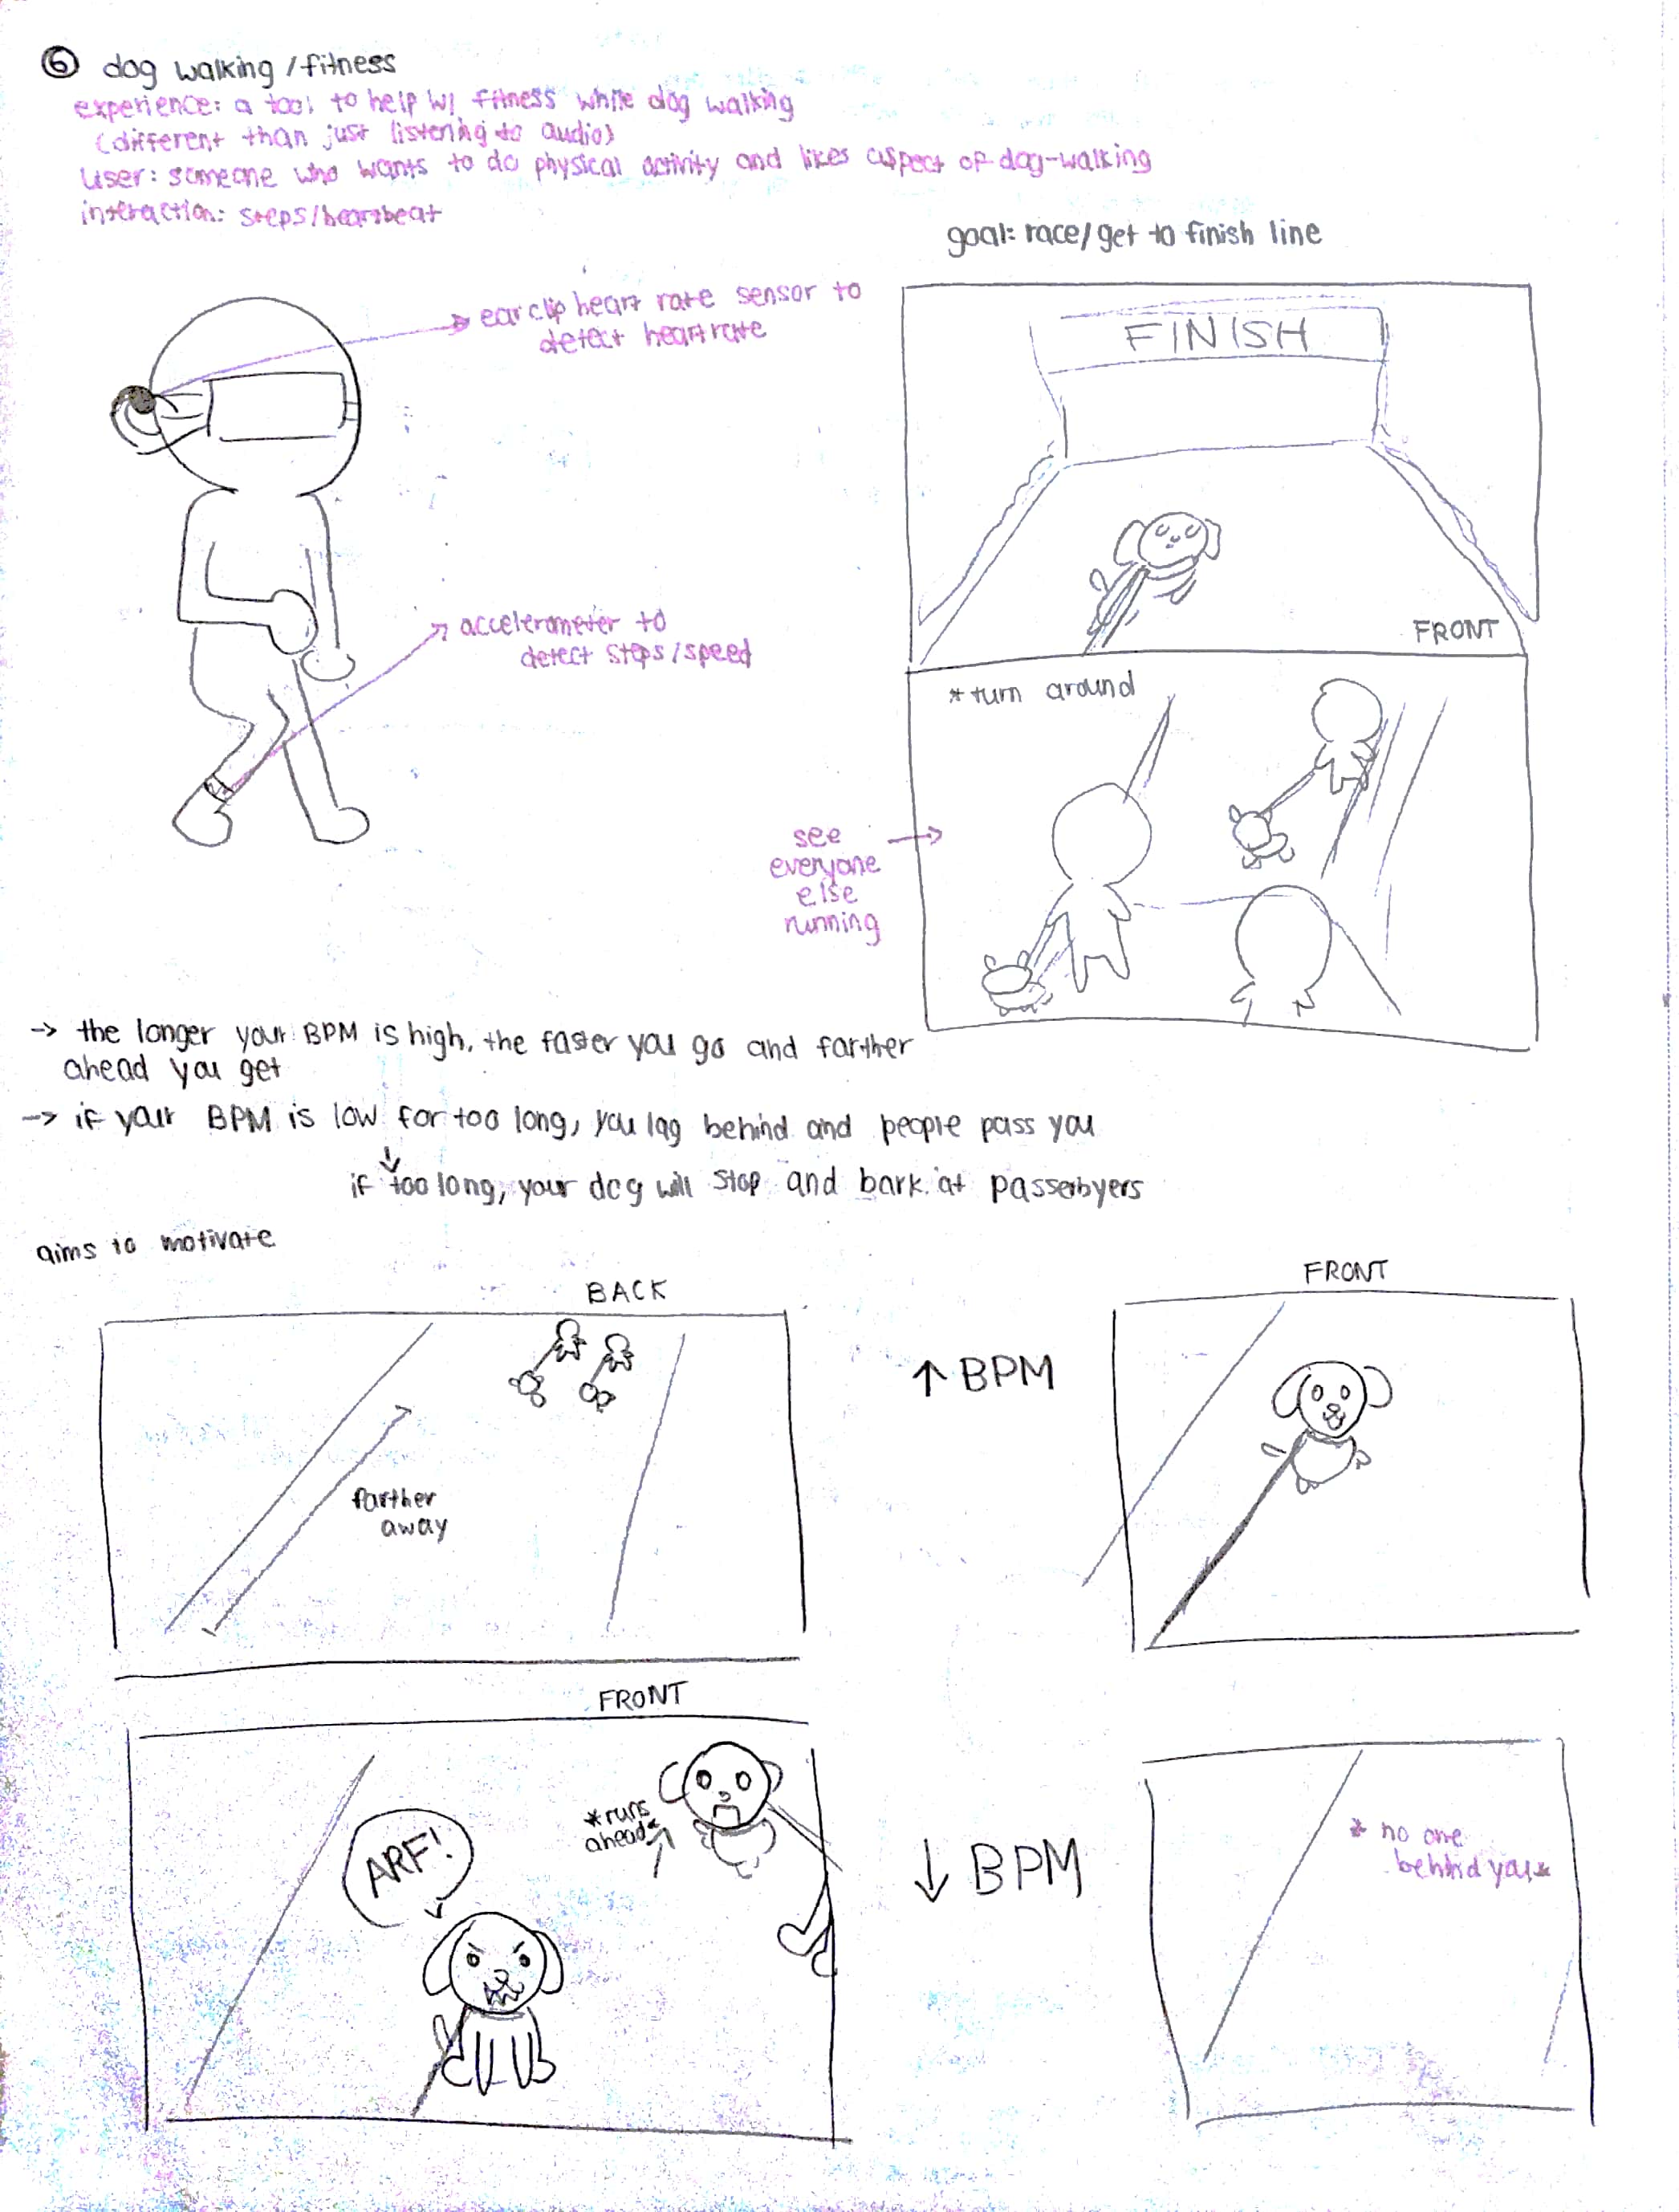 ⑥ dog walking/fitness
experience: a tool to help w/ fitness while dog walking
(different than just listening to audio)
user: someone who wants to do physical activity and likes aspect of dog-walking
interaction: steps/heartbeat
goal: race/get to finish line
ear clip heart rate sensor to
detect heart rate
FINISH
FRONT
accelerometer to
detect steps/speed
*turn around
see
everyone
else
running
→ the longer your BPM is high, the faster you go and farther
ahead you get
→ if your BPM is low for too long, you lag behind and people pass you
↓
if too long, your dog will stop and bark at passerbyers
aims to motivate
BACK
FRONT
↑ BPM
farther
away
FRONT
*runs
ahead*
ARF!
↓ BPM
* no one
behind you*